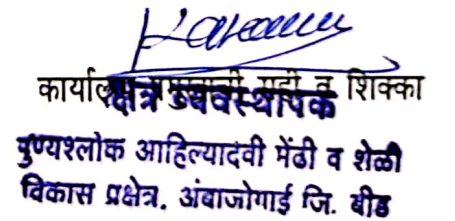 कार्यालय प्रमुखाची सही व शिक्का
क्षेत्र व्यवस्थापक
पुण्यश्लोक आहिल्यादेवी मेंढी व शेळी
विकास प्रक्षेत्र. अंबाजोगाई जि. बीड